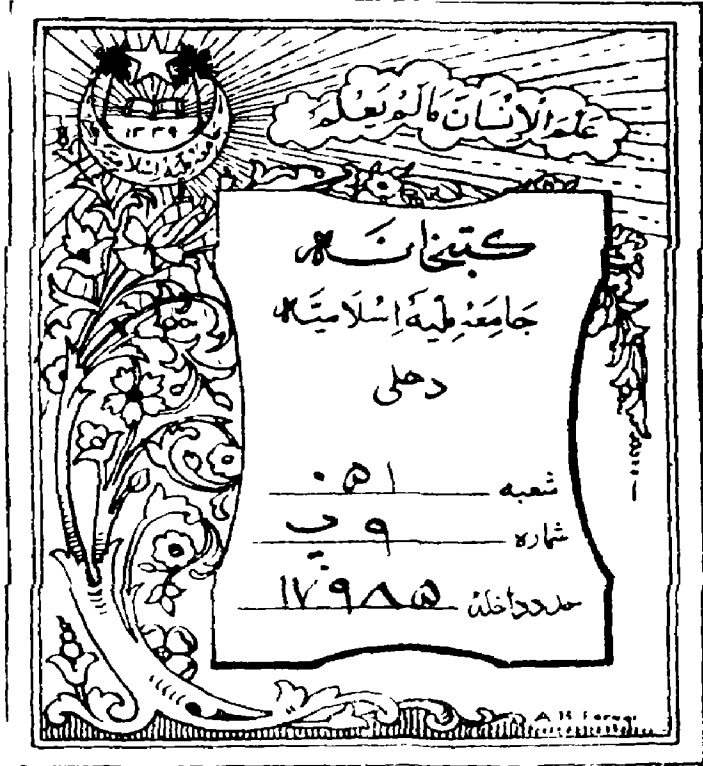 عَلَّمَ الْاِنْسَانَ مَا لَمْ يَعْلَمْ
١٣٣٩
جامعہ ملیہ اسلامیہ
کتبخانہ
جَامِعَہ مِلّیَہ اِسْلَامیَّہ
دهلی
شعبه ۰۵۱
شماره ۹ ب
عدد داخلہ ۱۷۹۸۵